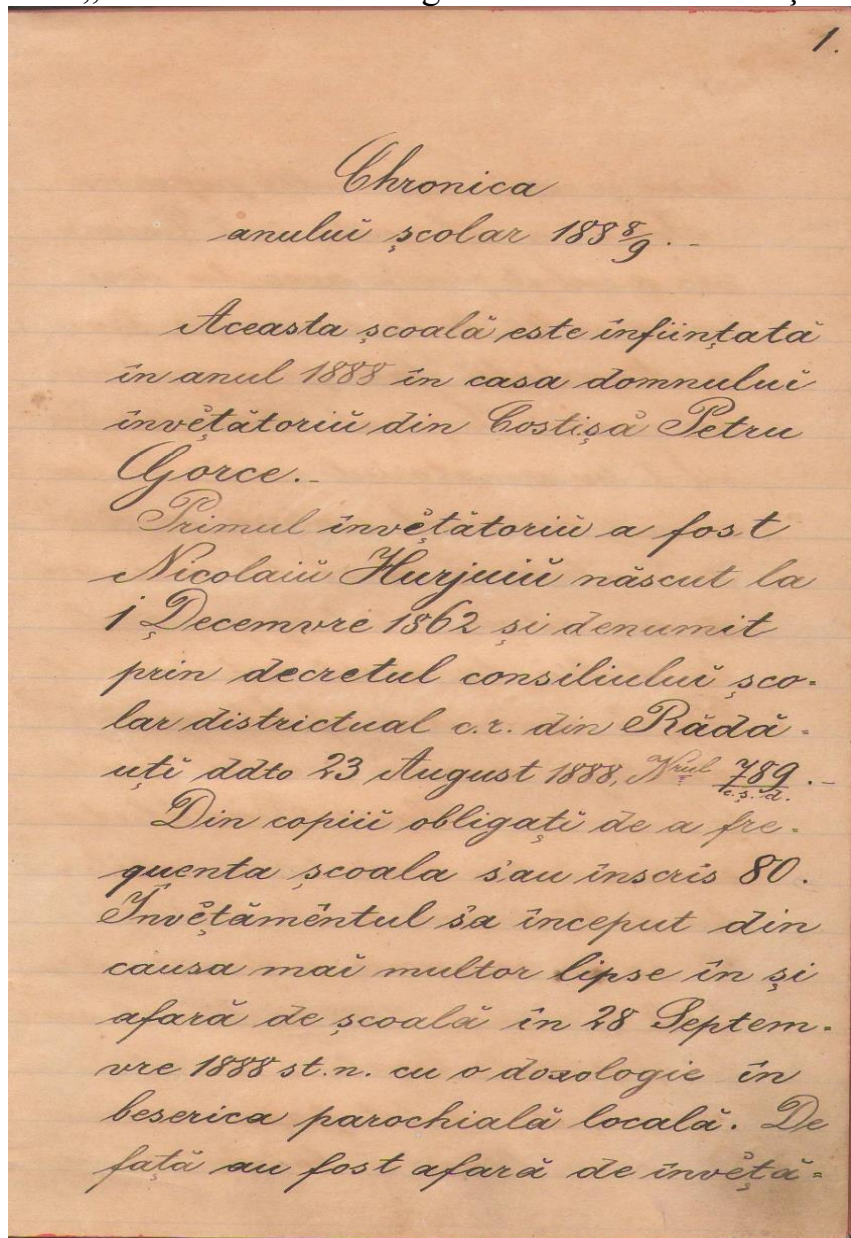 1.
Chronica
anului școlar 188 8/9. -
Aceasta școală este înființată
în anul 1888 în casa domnului
învĕțătoriŭ din Costișa Petru
Gorce. -
Primul învĕțătoriŭ a fost
Nicolaiŭ Hurjuiŭ născut la
1 Decemvre 1862 și denumit
prin decretul consiliuluĭ șco=
lar districtual c.r. din Rădă=
uțĭ ddto 23 August 1888, Nrul 789 . -
c. ș. d.
Din copiiĭ obligațĭ de a fre=
quenta școala s'au înscris 80.
Învĕțămêntul s'a început din
causa maĭ multor lipse în și
afară de școală în 28 Septem=
vre 1888 st. n. cu o doxologie în
beserica parochială locală. De
față au fost afară de învĕță=